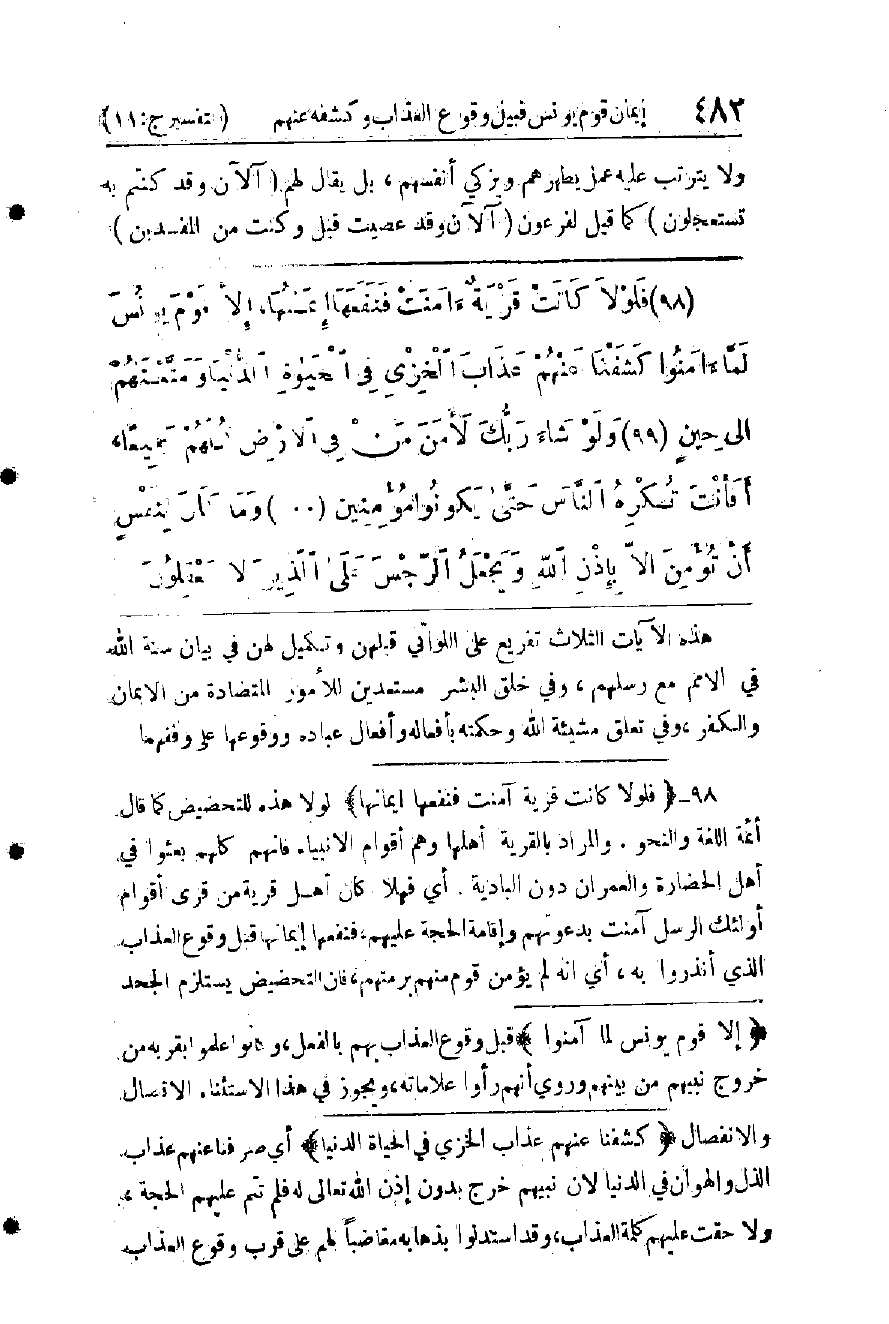 ٤٨٢ إيمان قوم يونس قبيل وقوع العذاب وكشفه عنهم (التفسير ج: ١١)
ولا يترتب عليه عمل يطهرهم ويزكي أنفسهم، بل يقال لهم (آلآن وقد كنتم به
تستعجلون) كما قيل لفرعون (آلآن وقد عصيت قبل وكنت من المفسدين)
(٩٨) فَلَوْلاَ كَانَتْ قَرْيَةٌ ءَامَنَتْ فَنَفَعَهَا إِيمَـٰنُهَا، إِلاَّ قَوْمَ يونُسَ
لَمَّا ءَامَنُوا كَشَفْنَا عَنْهُمْ عَذَابَ ٱلْخِزْيِ فِي ٱلْحَيَوٰةِ ٱلدُّنْيَا وَمَتَّعْنَـٰهُمْ
الى حِينٍ (٩٩) وَلَوْ شَاءَ رَبُّكَ لَأَمَنَ مَنْ فِي ٱلارْضِ كُلُّهُمْ جَمِيعًا،
أَفَأَنْتَ تُكْرِهُ ٱلنَّاسَ حَتَّىٰ يَكونُوا مُؤْمِنِين (٠٠) وَمَا كَانَ لِنَفْسٍ
أَنْ تُؤْمِنَ الاَّ بِإِذْنِ ٱللهِ وَيَجْعَلُ ٱلرِّجْسَ عَلَىٰ ٱلَّذِينَ لا يَعْقِلُونَ
هذه الآيات الثلاث تفريع على اللواتي قبلهن وتكميل لهن في بيان سنة الله
في الامم مع رسلهم، وفي خلق البشر مستعدين للأمور المتضادة من الايمان
والكفر، وفي تعلق مشيئة الله وحكمته بأفعاله وأفعال عباده ووقوعها على وفقهما
٩٨ـ ﴿فلولا كانت قرية آمنت فنفعها ايمانها﴾ لولا هذه للتحضيض كما قال
أئمة اللغة والنحو. والمراد بالقرية أهلها وهم أقوام الانبياء فانهم كلهم بعثوا في
أهل الحضارة والعمران دون البادية. أي فهلا كان أهل قرية من قرى أقوام
أولئك الرسل آمنت بدعوتهم وإقامة الحجة عليهم، فنفعها إيمانها قبل وقوع العذاب
الذي أنذروا به، أي انه لم يؤمن قوم منهم برمتهم، فان التحضيض يستلزم الجحد
﴿إلا قوم يونس لما آمنوا﴾ قبل وقوع العذاب بهم بالفعل، وكانوا علموا بقربه من
خروج نبيهم من بينهم وروي أنهم رأوا علاماته، ويجوز في هذا الاستثناء الاتصال
والانفصال ﴿كشفنا عنهم عذاب الخزي في الحياة الدنيا﴾ أي صرفنا عنهم عذاب
الذل والهوان في الدنيا لان نبيهم خرج بدون إذن الله تعالى له فلم تتم عليهم الحجة،
ولا حقت عليهم كلمة العذاب، وقد استدلوا بذهابه مغاضباً لهم على قرب وقوع العذاب